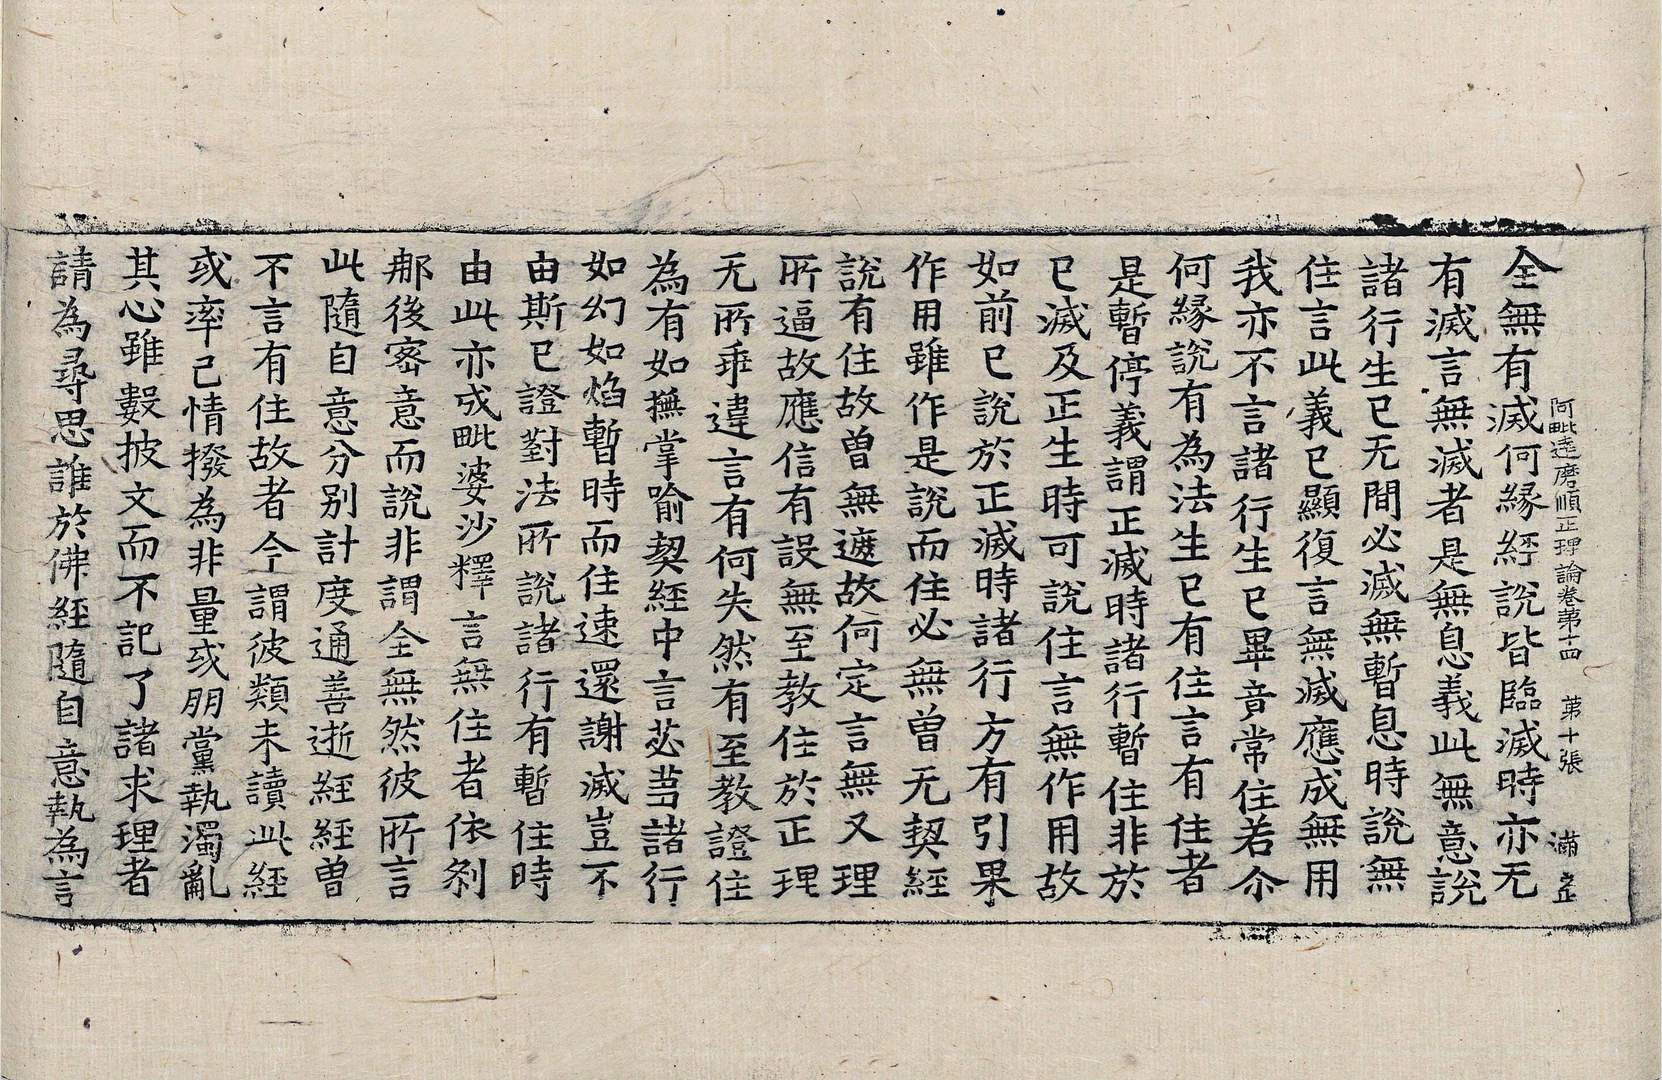 阿毗達磨順正理論卷第十四　第十張　滿
全無有滅何緣經說皆臨滅時亦无
有滅言無滅者是無息義此無意說
諸行生已无間必滅無暫息時說無
住言此義已顯復言無滅應成無用
我亦不言諸行生已畢竟常住若尒
何緣說有為法生已有住言有住者
是暫停義謂正滅時諸行暫住非於
已滅及正生時可說住言無作用故
如前已說於正滅時諸行方有引果
作用雖作是說而住必無曾无契經
說有住故曾無遮故何定言無又理
所逼故應信有設無至教住於正理
无所乖違言有何失然有至教證住
為有如撫掌喻契經中言苾芻諸行
如幻如焰暫時而住速還謝滅豈不
由斯已證對法所說諸行有暫住時
由此亦成毗婆沙釋言無住者依剎
那後密意而說非謂全無然彼所言
此隨自意分別計度通善逝經經曾
不言有住故者今謂彼類未讀此經
或率己情撥為非量或朋黨執濁亂
其心雖數披文而不記了諸求理者
請為尋思誰於佛經隨自意執為言